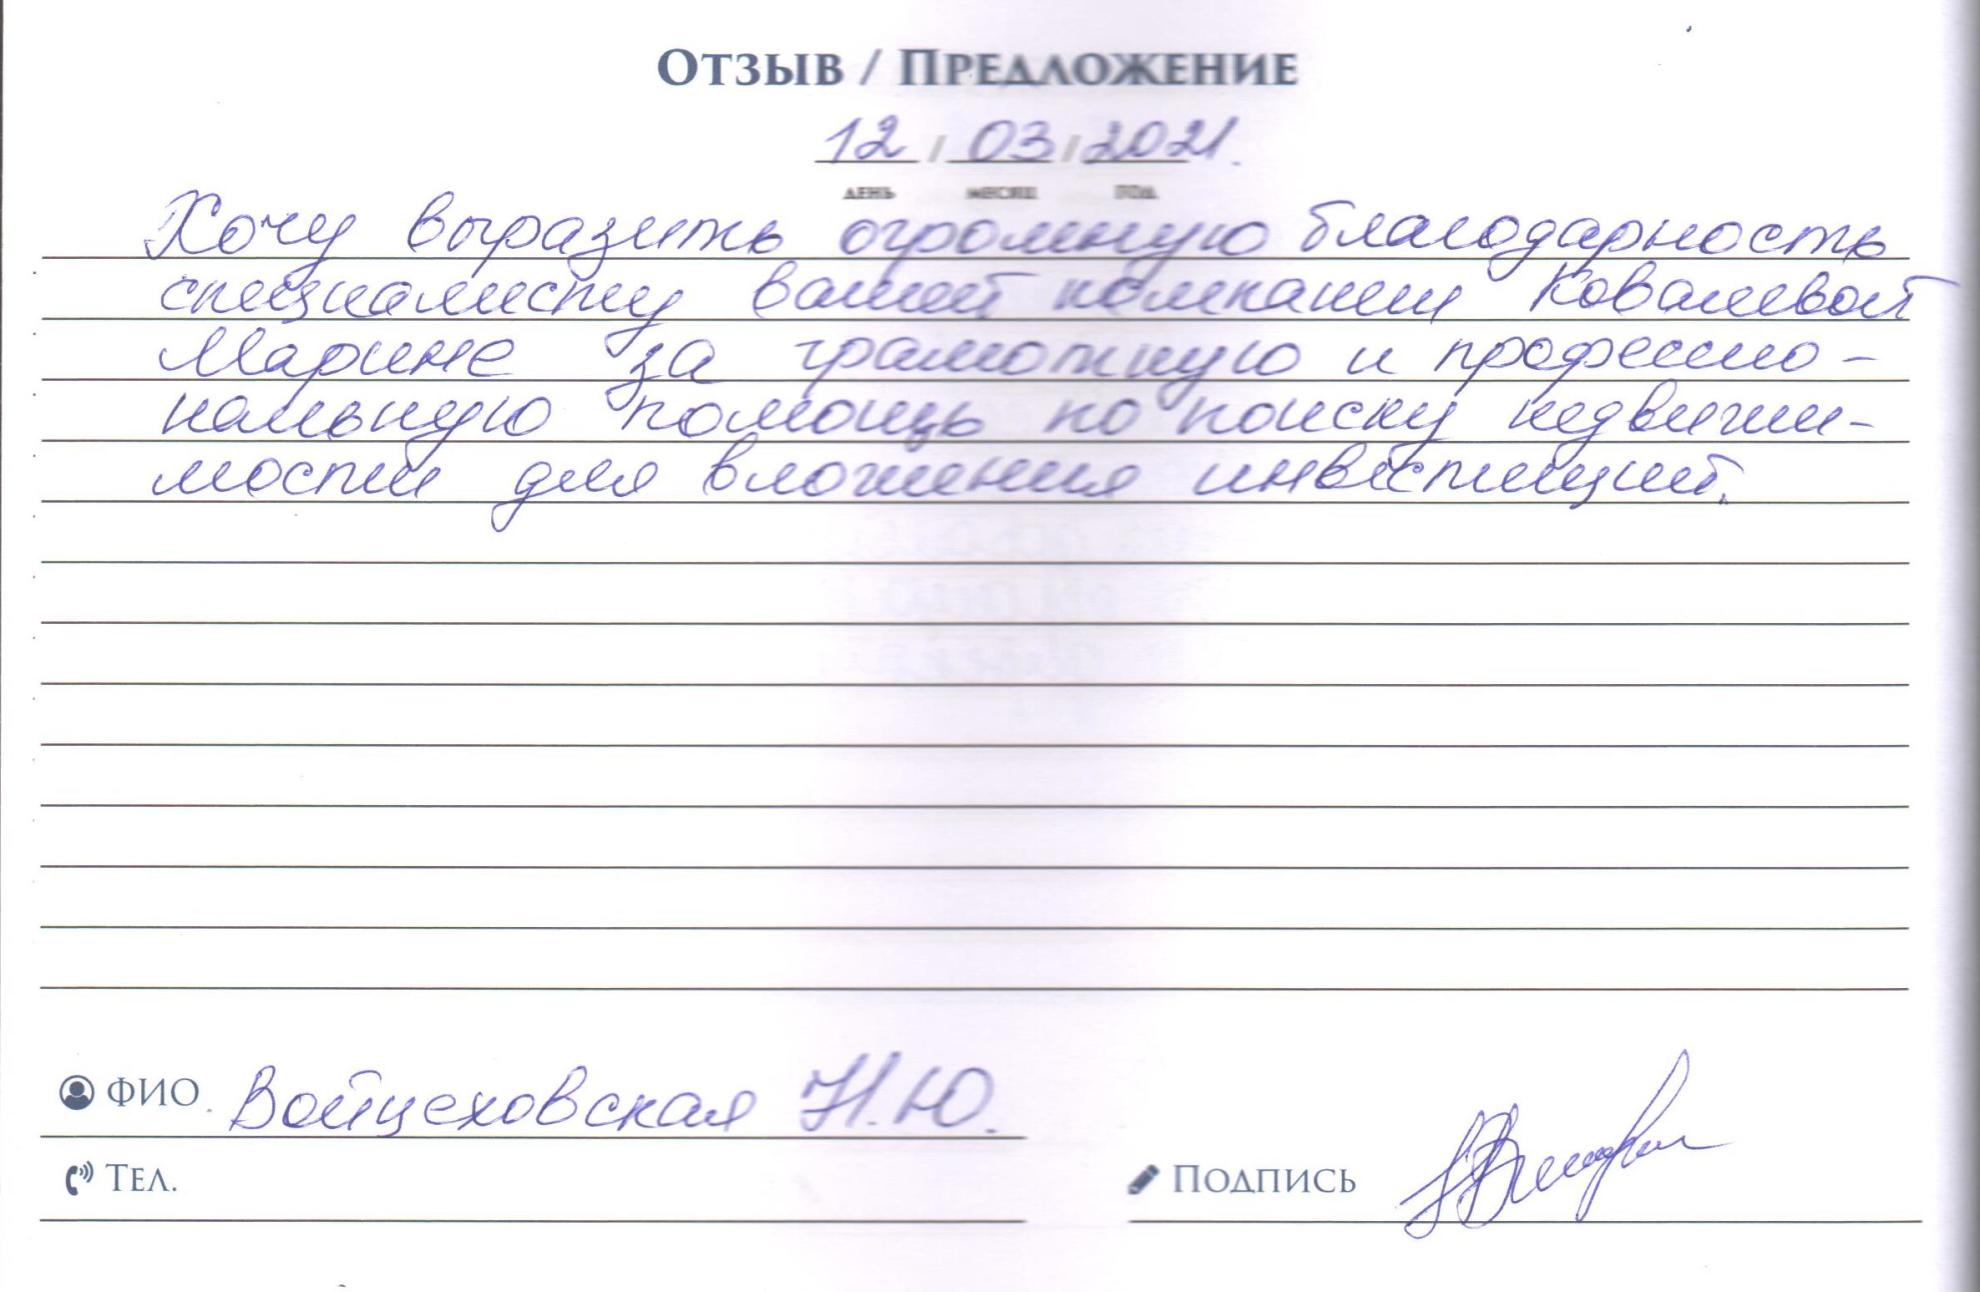 Отзыв / Предложение
12 / 03 / 2021.
день месяц год
Хочу выразить огромную благодарность
специалисту вашей компании Ковалевой
Марине за грамотную и професcио-
нальную помощь по поиску недвижи-
мости для вложения инвестиций.
ФИО Войцеховская Н.Ю.
Тел.
Подпись